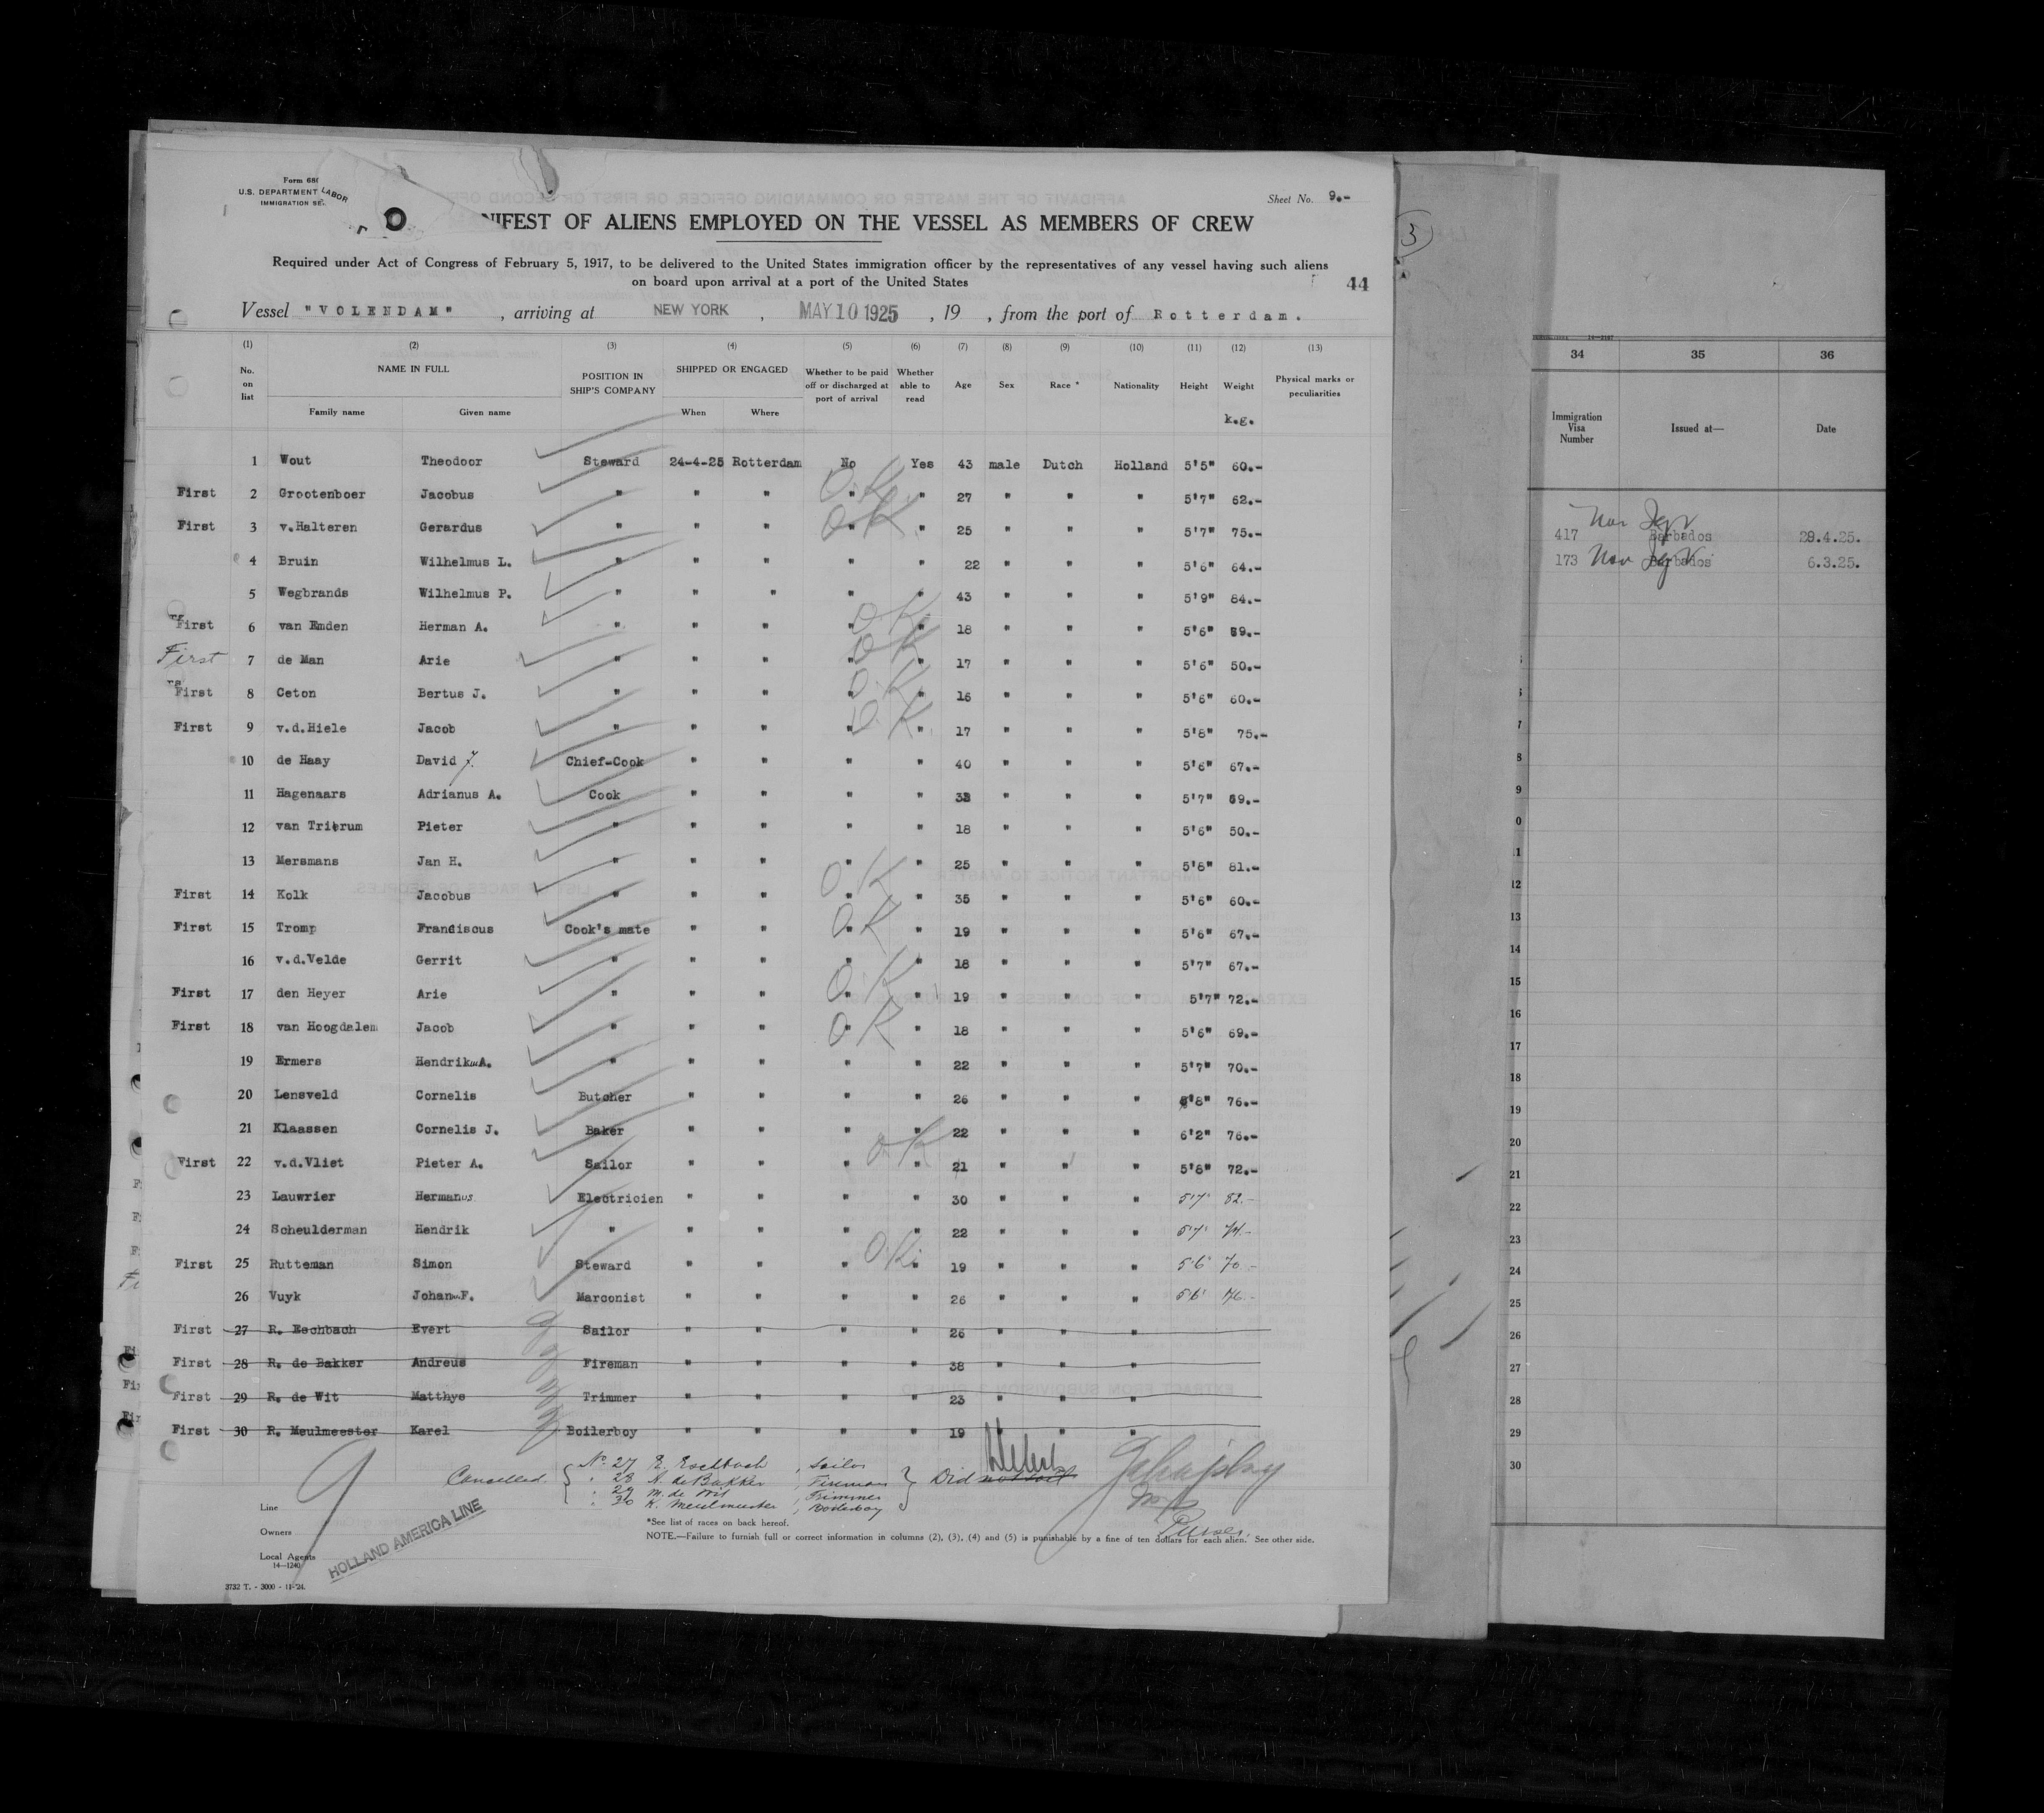 Form 68
U.S. DEPARTMENT LABOR
IMMIGRATION SE
Sheet No. 9.-
NIFEST OF ALIENS EMPLOYED ON THE VESSEL AS MEMBERS OF CREW
Required under Act of Congress of February 5, 1917, to be delivered to the United States immigration officer by the representatives of any vessel having such aliens
on board upon arrival at a port of the United States
44
Vessel "VOLENDAM", arriving at NEW YORK, MAY 10 1925, 19 , from the port of Rotterdam.
(1) (2) (3) (4) (5) (6) (7) (8) (9) (10) (11) (12) (13)
No. on list NAME IN FULL POSITION IN SHIP'S COMPANY SHIPPED OR ENGAGED Whether to be paid off or discharged at port of arrival Whether able to read Age Sex Race * Nationality Height Weight Physical marks or peculiarities
Family name Given name When Where k.g.
1 Wout Theodoor Steward 24-4-25 Rotterdam No Yes 43 male Dutch Holland 5'5" 60.-
First 2 Grootenboer Jacobus " " " O.K. " " 27 " " " 5'7" 62.-
First 3 v.Halteren Gerardus " " " O.K. " " 25 " " " 5'7" 75.-
4 Bruin Wilhelmus L. " " " " " 22 " " " 5'6" 64.-
5 Wegbrands Wilhelmus P. " " " " " 43 " " " 5'9" 84.-
First 6 van Emden Herman A. " " " O.K. " " 18 " " " 5'6" 59.-
First 7 de Man Arie " " " O.K. " " 17 " " " 5'6" 50.-
First 8 Ceton Bertus J. " " " O.K. " " 16 " " " 5'6" 60.-
First 9 v.d.Hiele Jacob " " " O.K. " " 17 " " " 5'8" 75.-
10 de Haay David J. Chief-Cook " " " " 40 " " " 5'6" 67.-
11 Hagenaars Adrianus A. Cook " " " " " " " 5'7" 69.-
12 van Trierum Pieter " " " " " 18 " " " 5'6" 50.-
13 Mersmans Jan H. " " " " " 25 " " " 5'8" 81.-
First 14 Kolk Jacobus " " " O.K. " " 35 " " " 5'6" 60.-
First 15 Tromp Franciscus Cook's mate " " O.K. " " 19 " " " 5'6" 67.-
16 v.d.Velde Gerrit " " " " " 18 " " " 5'7" 67.-
First 17 den Heyer Arie " " " O.K. " " 19 " " " 5'7" 72.-
First 18 van Hoogdalem Jacob " " " O.K. " " 18 " " " 5'6" 69.-
19 Ermers Hendrikus A. " " " " " 22 " " " 5'7" 70.-
20 Lensveld Cornelis Butcher " " " " 26 " " " 5'8" 76.-
21 Klaassen Cornelis J. Baker " " " " 22 " " " 6'2" 76.-
First 22 v.d.Vliet Pieter A. Sailor " " O.K. " " 21 " " " 5'8" 72.-
23 Lauwrier Hermanus Electricien " " " " 30 " " " 5'7" 82.-
24 Scheulderman Hendrik " " " " " 22 " " " 5'7" 74.-
First 25 Rutteman Simon Steward " " O.K. " " 19 " " " 5'6" 70.-
26 Vuyk Johan F. Marconist " " " " 26 " " " 5'6" 76.-
First 27 R. Eschbach Evert Sailor " " " " 26 " " "
First 28 R. de Bakker Andreus Fireman " " " " 38 " " "
First 29 R. de Wit Matthys Trimmer " " " " 23 " " "
First 30 R. Meulmeester Karel Boilerboy " " " " 19 " " "
Cancelled. No. 27 E. Eschbach, Sailor
" 28 A. de Bakker, Fireman
" 29 M. de Wit, Trimmer
" 30 K. Meulmeester, Boilerboy
Did not sail
Purser.
9
Line
Owners
Local Agents
14-1240
HOLLAND AMERICA LINE
*See list of races on back hereof.
NOTE.—Failure to furnish full or correct information in columns (2), (3), (4) and (5) is punishable by a fine of ten dollars for each alien. See other side.
3732 T. - 3000 - 11-'24.
3
34 35 36
Immigration Visa Number Issued at— Date
417 Barbados 29.4.25.
173 Barbados 6.3.25.
8
9
0
11
12
13
14
15
16
17
18
19
20
21
22
23
24
25
26
27
28
29
30